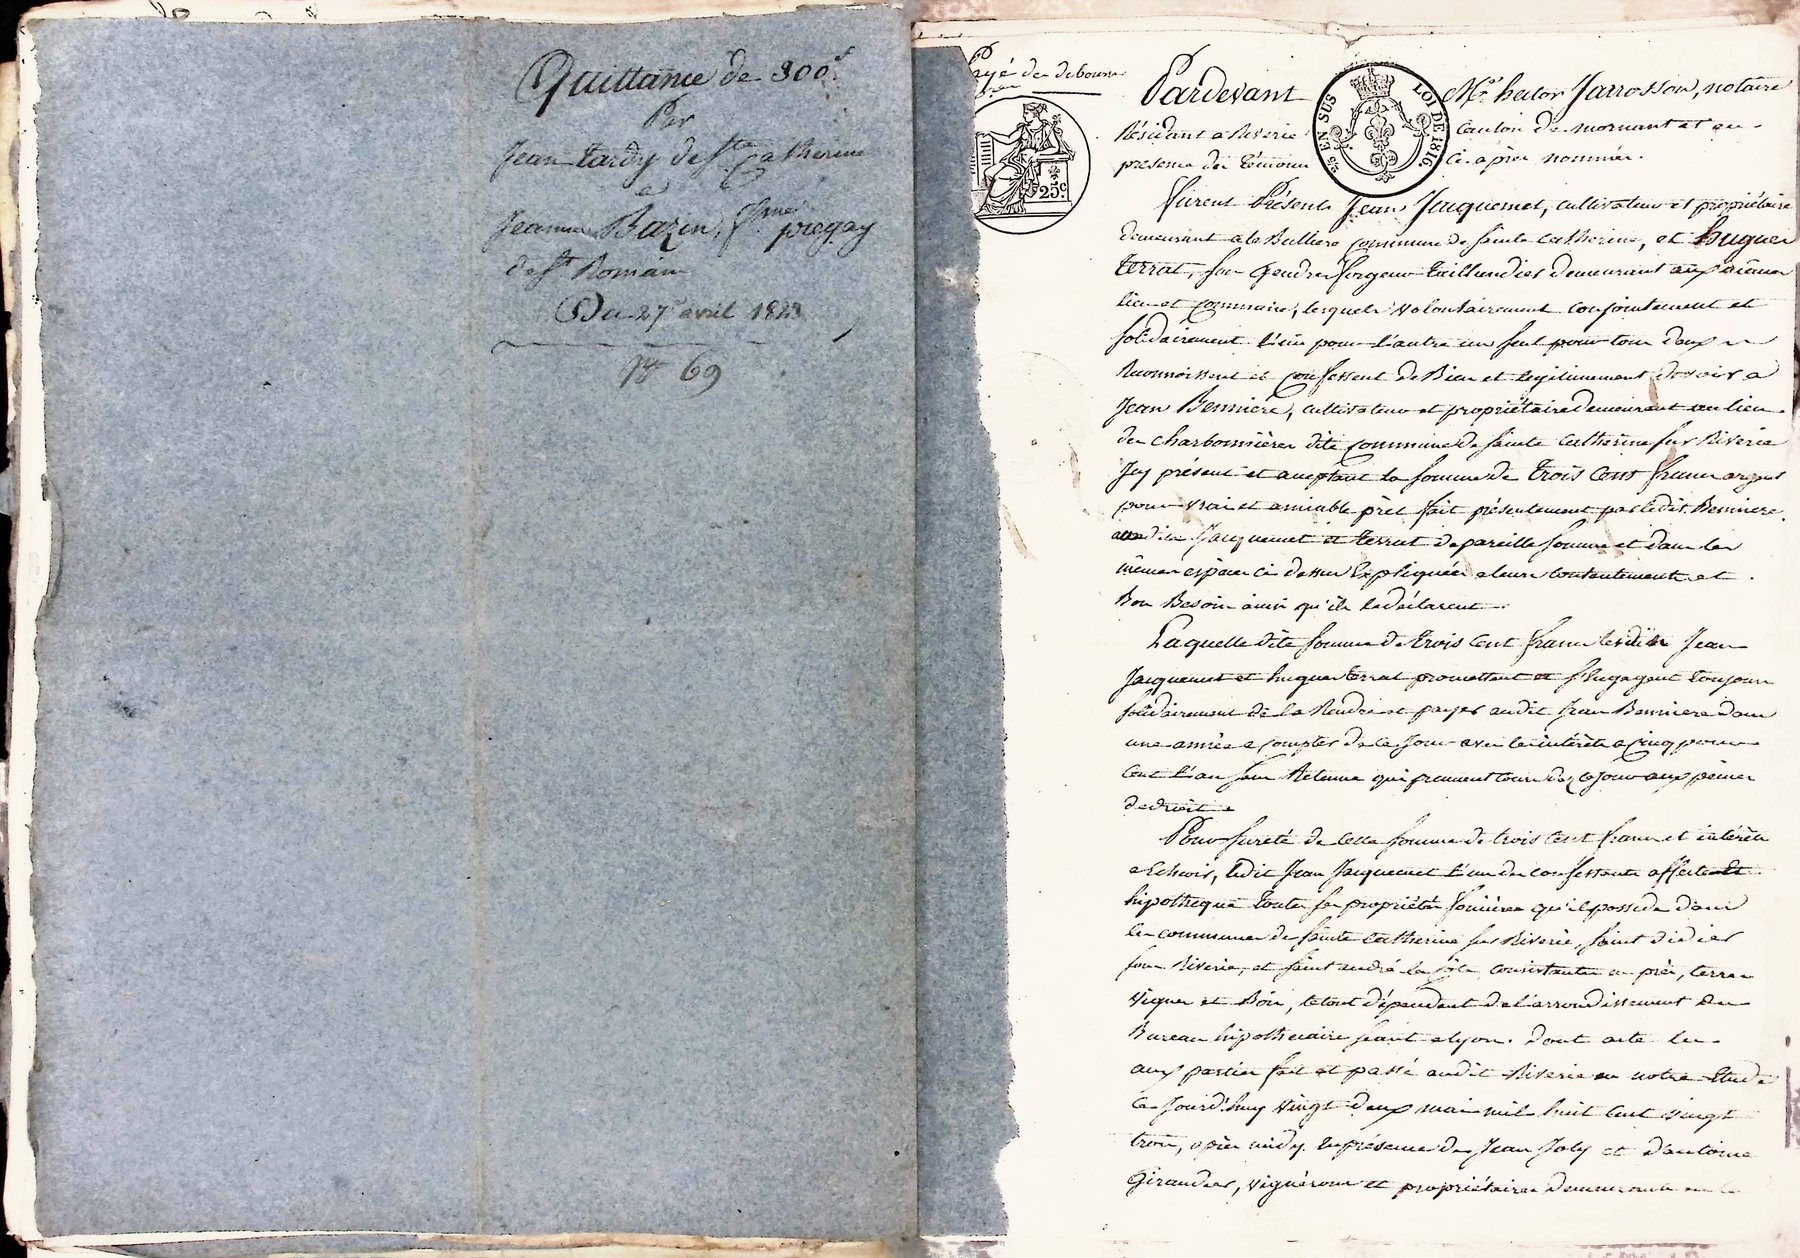 Quittance de 300f.
Par
Jean Tardy de Ste Catherine
a
Jeanne Bazin, fme pregay
de St Romain
Du 27 avril 1823
No 69
payé de debours
25c.
25 EN SUS
LOI DE 1816.
Pardevant Me hector Jarrosson, notaire
Résidant a Riverie canton de mornant et en
presence des témoins ci après nommés.
Furent Présents Jean Jacquemet, cultivateur et propriétaire
demeurant a la Bulliere commune de sainte catherine, et hugues
terrat, son Gendre forgeur taillandier demeurant aux mêmes
lieu et commune, lesquels volontairement conjointement et
solidairement l'un pour l'autre un seul pour tous deux
Reconnoissent et confessent de Bien et legitimement devoir a
Jean Bennière, cultivateur et propriétaire demeurant au lieu
des charbonnières dite commune de sainte catherine sur Riverie
Icy présent et acceptant la somme de trois Cent francs argent
pour vrai et amiable prêt fait présentement par ledit Benniere
auxdits Jacquemet et terrat de pareille somme et dans les
mêmes espèces ci dessus Expliquées a leur contentement et
Bon Besoin ainsi qu'ils le déclarent.
Laquelle dite somme de trois Cent francs lesdits Jean
Jacquemet et hugues terrat promettent et s'Engagent toujours
solidairement de la Rendre et payer audit Jean Benniere dans
une année a compter de ce Jour avec les intérêts a cinq pour
Cent l'an sans Retenue qui prennent cours dez ce jour aux peines
de droit.
Pour sureté de cette somme de trois Cent francs et intérêts
a Echoir, ledit Jean Jacquemet l'un des confessants affecte et
hipotheque toutes ses propriétés foncières qu'il possede dans
les communes de sainte catherine sur Riverie, saint didier
sous Riverie, et saint andré la Côte, consistantes en prés, terres
vignes et Bois, le tout dépendant de l'arrondissement du
Bureau hipothécaire séant a lyon. dont acte lu
aux parties fait et passé audit Riverie en notre Etude
Ce Jourd'huy vingt deux mai mil huit cent vingt
trois, après midy. En présence de Jean Joly et d'antoine
Giraudier, vignerons et propriétaires demeurants